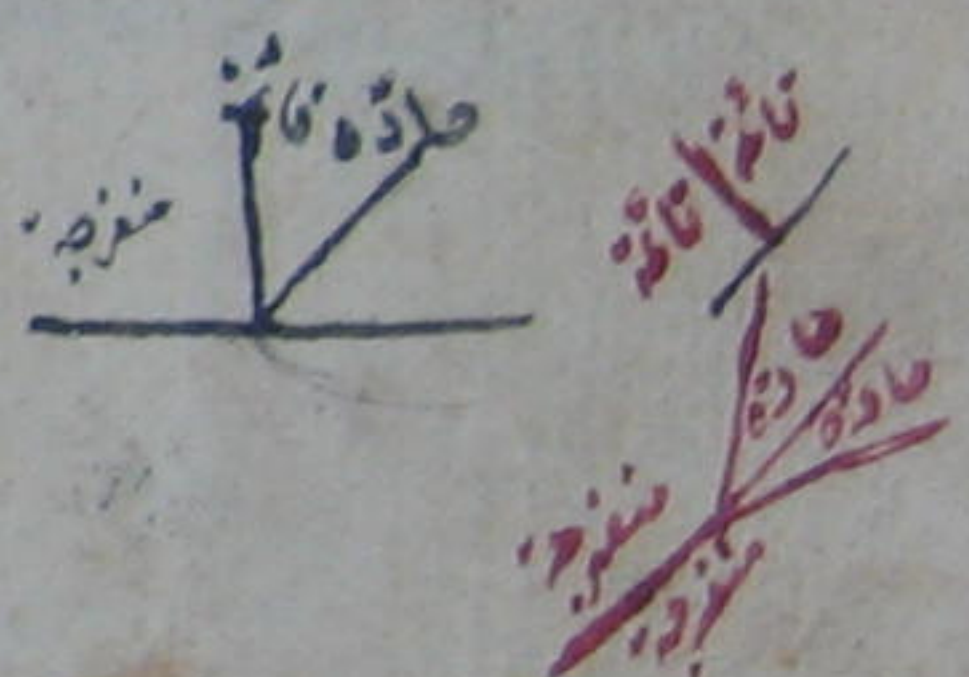 حادة قائمة
منفرجة
قائمة
قائمة
حادة
حادة
منفرجة
منفرجة